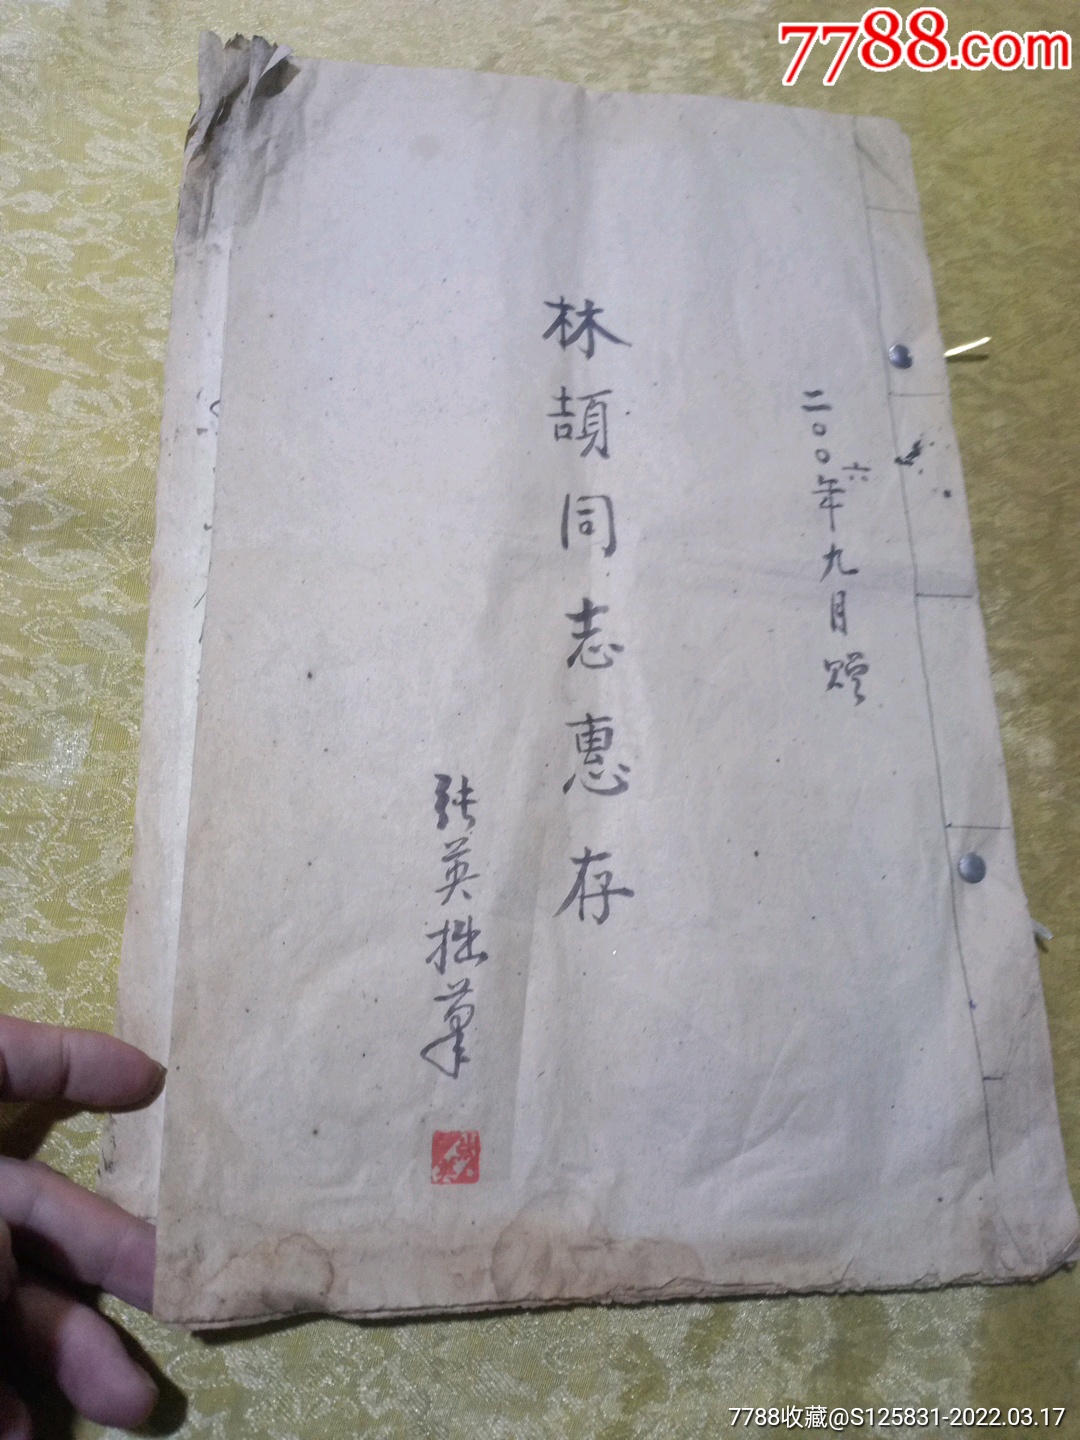 7788.com
二〇〇六年九月赠
林頡同志惠存
张英拙筆
7788收藏@S125831-2022.03.17